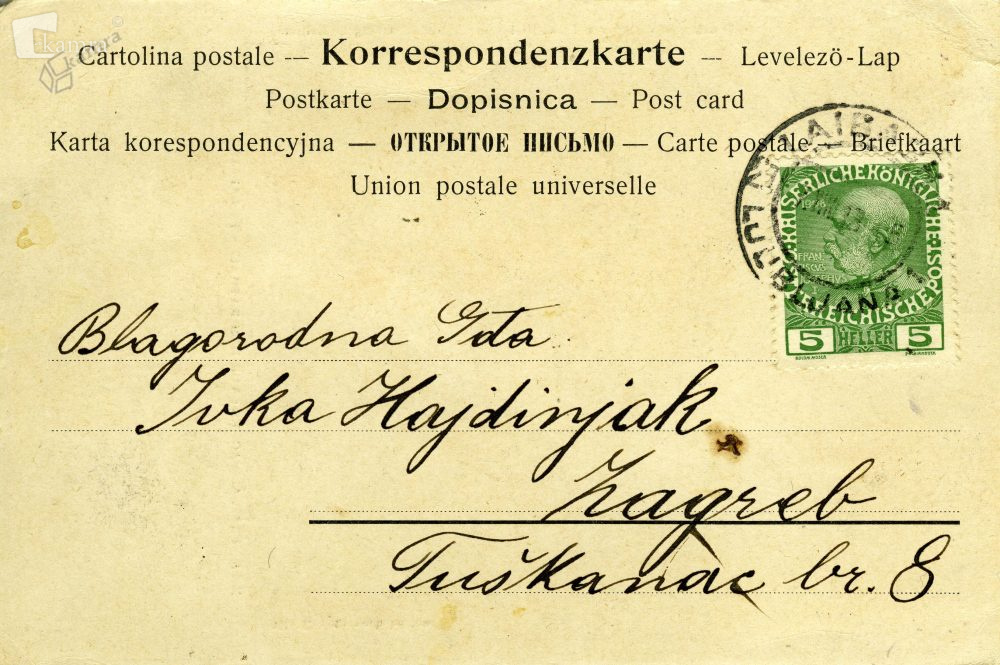 kamra
kamra
Cartolina postale — Korrespondenzkarte — Levelező-Lap
Postkarte — Dopisnica — Post card
Karta korespondencyjna — ОТКРЫТОЕ ПИСЬМО — Carte postale — Briefkaart
Union postale universelle
KAISERLICHE KÖNIGLICHE
ÖSTERREICHISCHE POST
5 HELLER 5
LAIBACH
LJUBLJANA 1
Blagorodna Gđa
Ivka Hajdinjak
Zagreb
Tuškanac br. 8